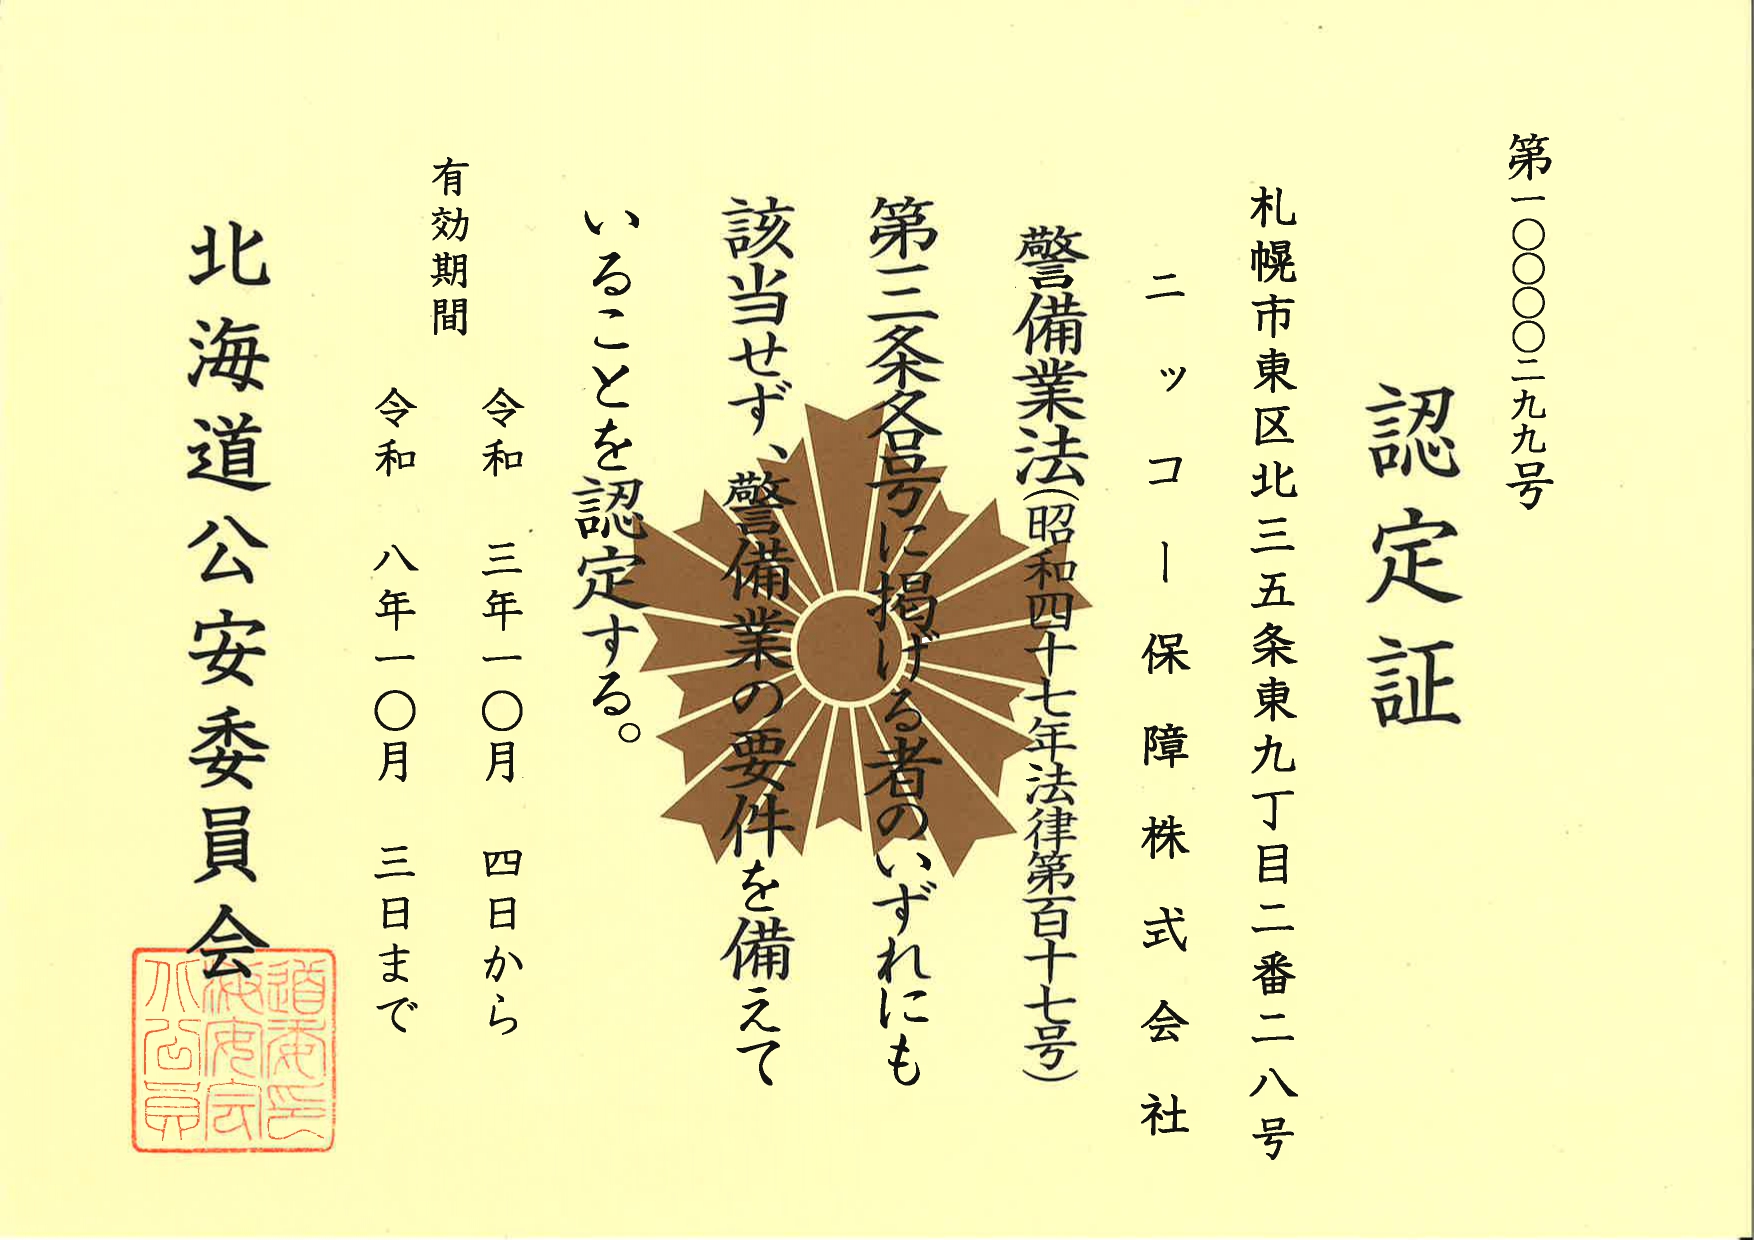 第一〇〇〇〇二九九号
認定証
札幌市東区北三五条東九丁目二番二八号
ニッコー保障株式会社
警備業法(昭和四十七年法律第百十七号)
第三条各号に掲げる者のいずれにも
該当せず、警備業の要件を備えて
いることを認定する。
有効期間
令和 三年一〇月 四日から
令和 八年一〇月 三日まで
北海道公安委員会